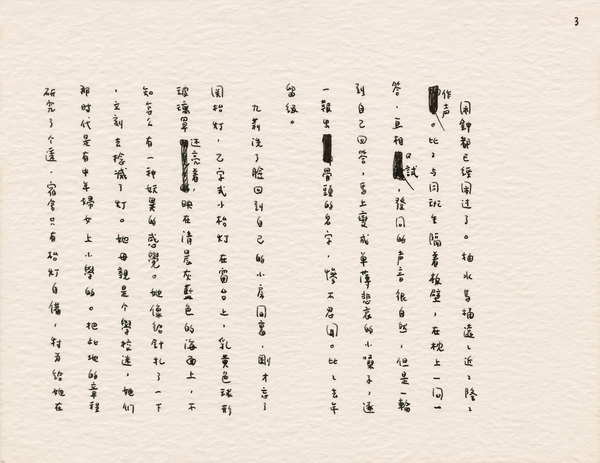 3
鬧鐘都已經鬧过了。抽水馬桶遠〻近〻隆〻
作声。比〻与同班生隔着板壁，在枕上一問一
答，互相口試，發問的声音很自然，但是一輪
到自己回答，馬上變成单薄悲哀的小嗓子，逐
一報出骨頭的名字，慘不忍聞。比〻去年
留級。
九莉洗了臉回到自己的小房間裏，剛才忘了
関枱灯，乙字式小枱灯在窗台上，乳黄色球形
玻璃罩还亮着映在清晨灰藍色的海面上，不
知怎么有一种妖異的感覺。她像給針扎了一下
，立刻去捻滅了灯。她母親是个學校迷，她们
那时代是有中年婦女上小學的。把此地的章程
研究了个透，宿舍只有枱灯自備，特为給她在